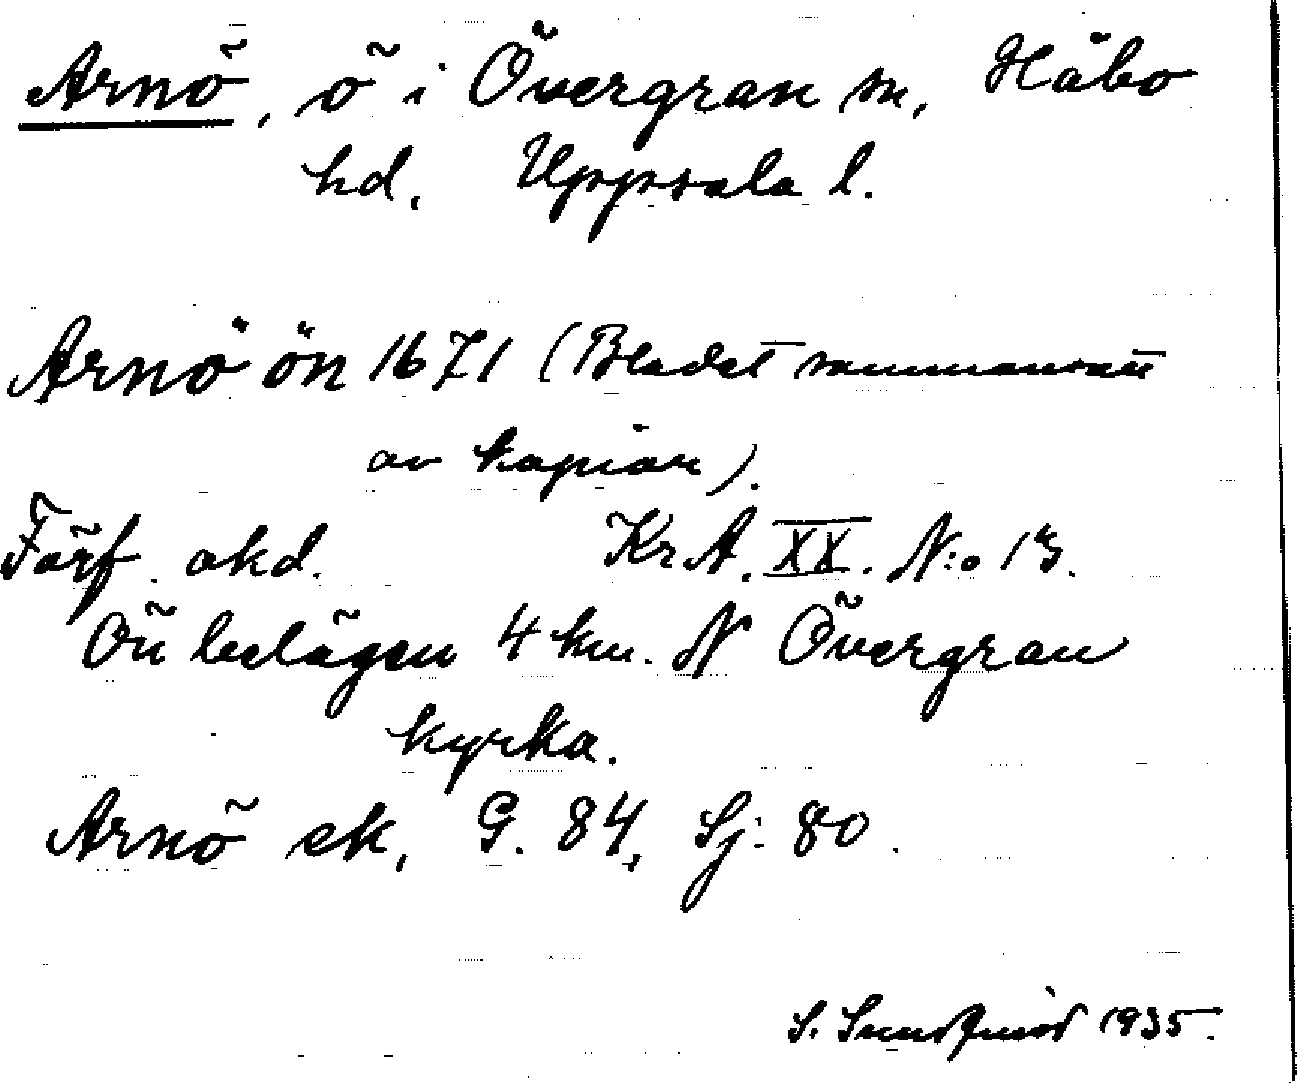 Arnö, ö i Övergran sn, Håbo
hd, Uppsala l.
Arnö ön 1671 (Bladet sammansatt
av kopior).
Förf. okd. Kr A. XX. N:o 13.
Ön belägen 4 km. N Övergran
kyrka.
Arnö ek, G. 84, Sj: 80.
S. Sundqvist 1935.